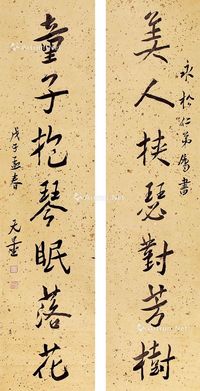 永松仁弟属書
美人挟瑟對芳樹
童子抱琴眠落花
戊子孟春